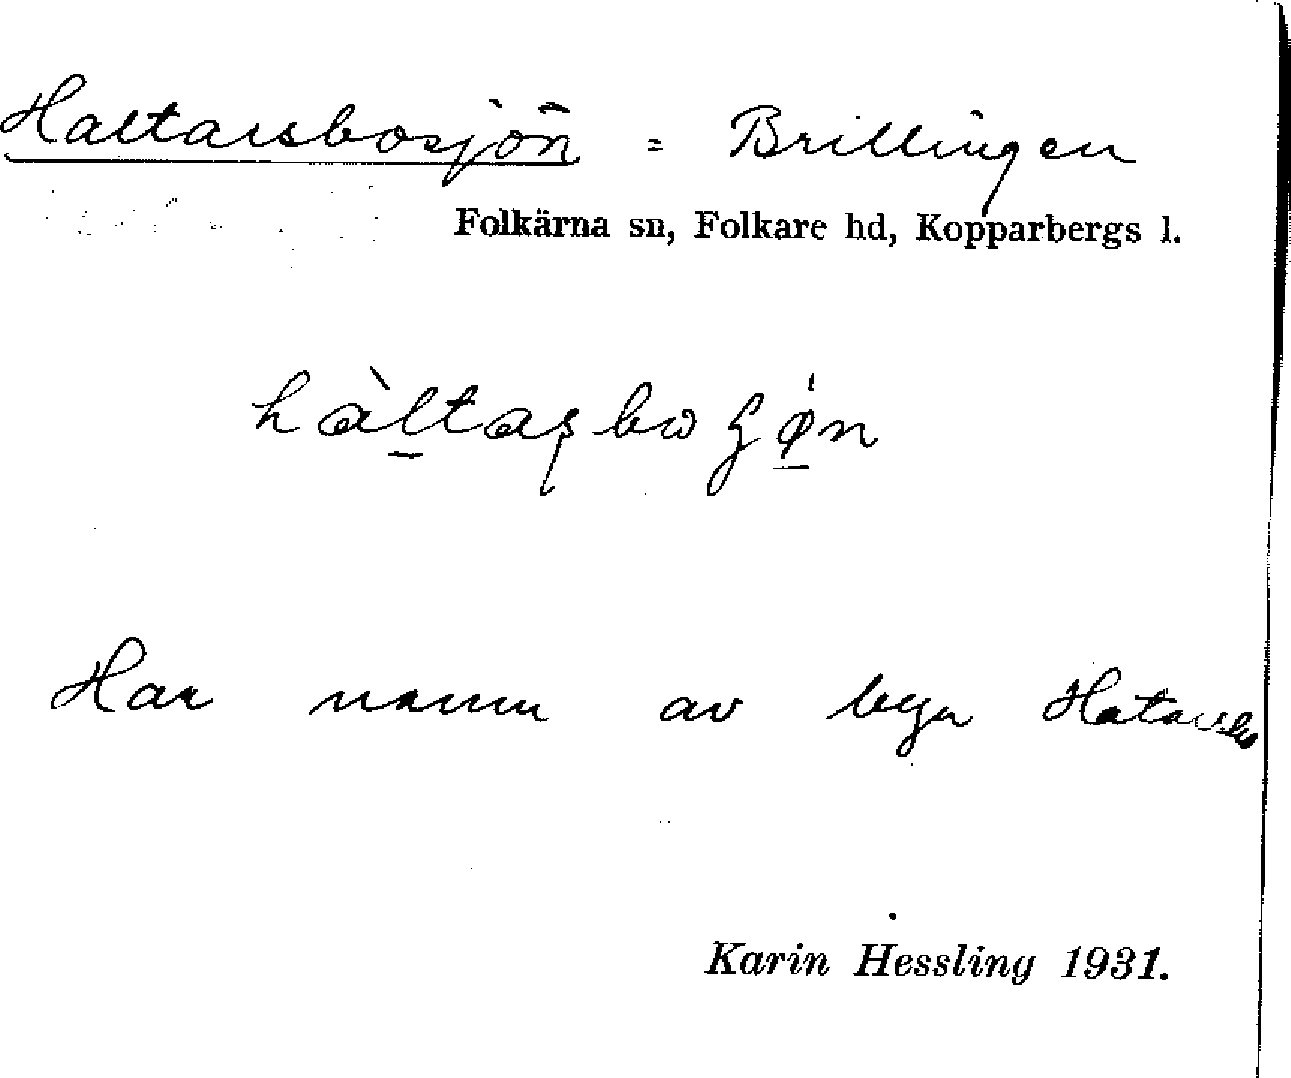 Haltarsbosjön = Brillingen
Folkärna sn, Folkare hd, Kopparbergs l.
Har namn av byn
Karin Hessling 1931.